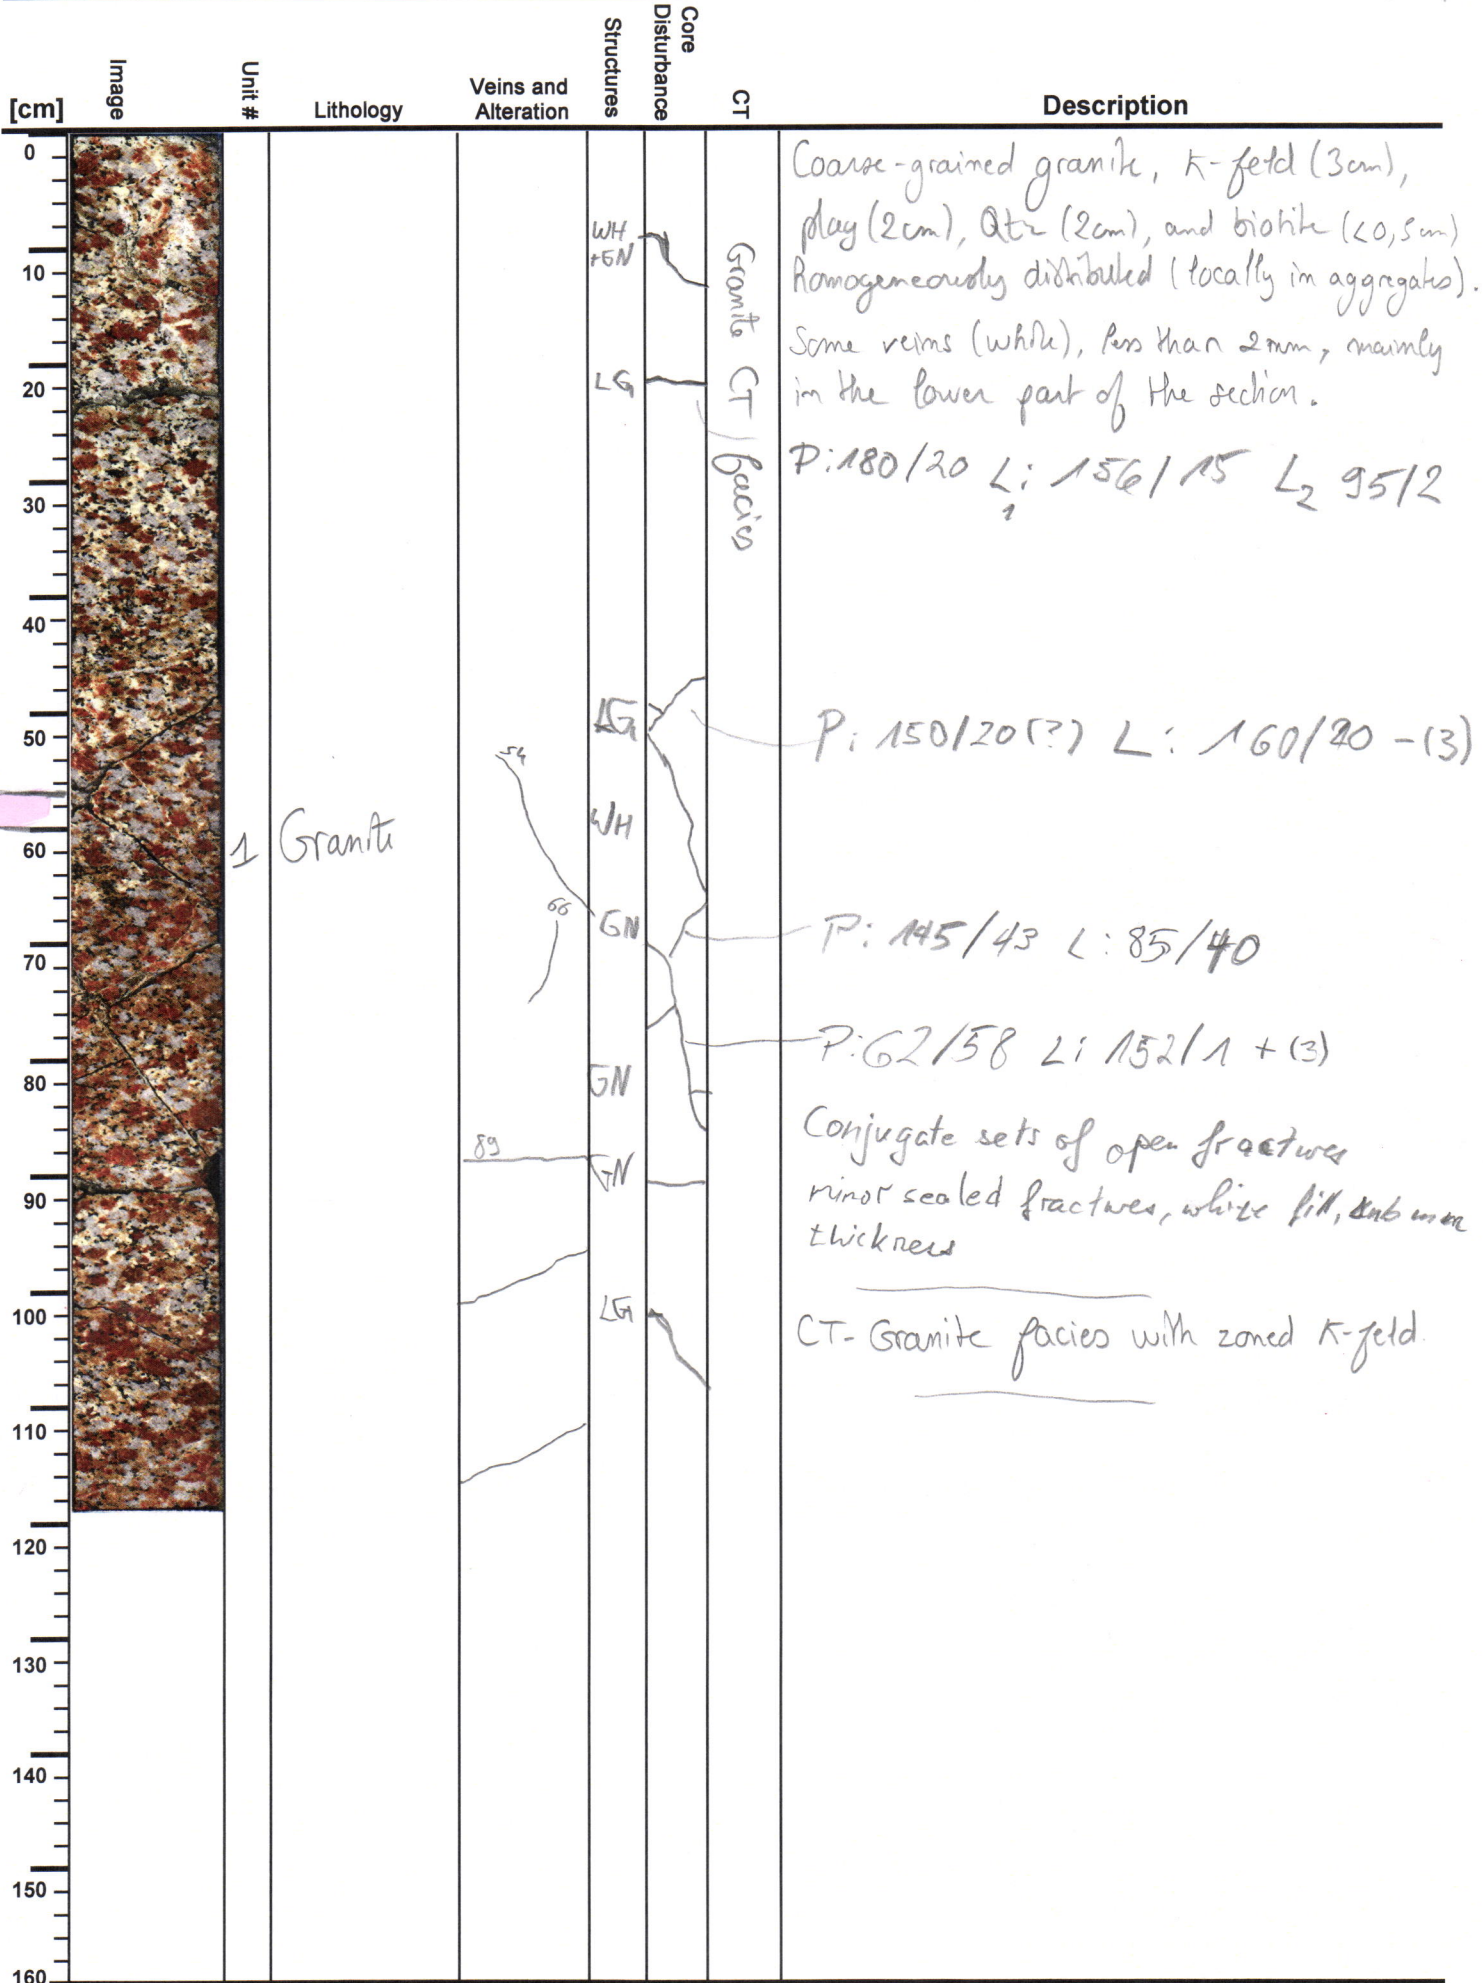 [cm]
Image
Unit #
Lithology
Veins and
Alteration
Structures
Core
Disturbance
CT
Description
0
10
20
30
40
50
60
70
80
90
100
110
120
130
140
150
160
1
Granite
54
66
89
WH
+GN
LG
LG
WH
GN
GN
GN
LG
Granite CT facies
Coarse-grained granite, K-feld (3cm),
plag (2cm), Qtz (2cm), and biotite (<0,5cm)
homogeneously distributed (locally in aggregates).
Some veins (white), less than 2mm, mainly
in the lower part of the section.
P:180/20 L1: 156/15 L2 95/2
P: 150/20(?) L: 160/20 -(3)
P: 145/43 L: 85/40
P:62/58 L: 152/1 +(3)
Conjugate sets of open fractures
minor sealed fractures, white fill, sub mm
thickness
CT- Granite facies with zoned K-feld